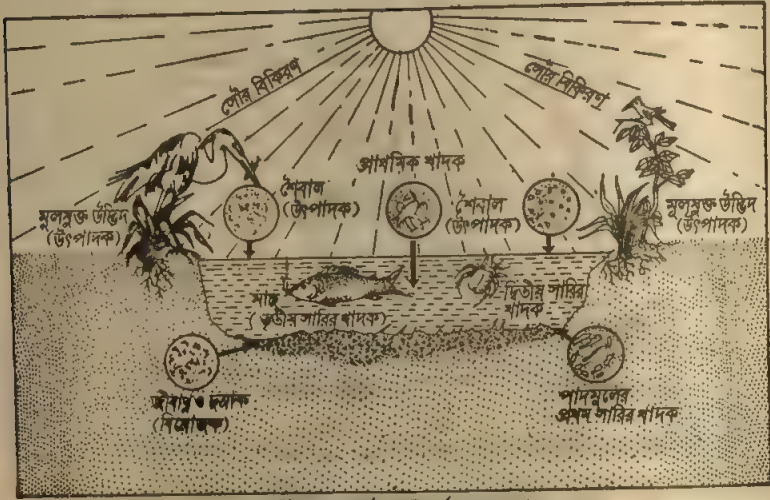 সৌর বিকিরণ
সৌর বিকিরণ
প্রাথমিক খাদক
শৈবাল
(উৎপাদক)
শৈবাল
(উৎপাদক)
মূলযুক্ত উদ্ভিদ
(উৎপাদক)
মূলযুক্ত উদ্ভিদ
(উৎপাদক)
মাছ
(তৃতীয় সারির খাদক)
দ্বিতীয় সারির
খাদক
জীবাণু ও ছত্রাক
(বিয়োজক)
পাদমূলের
প্রথম সারির খাদক